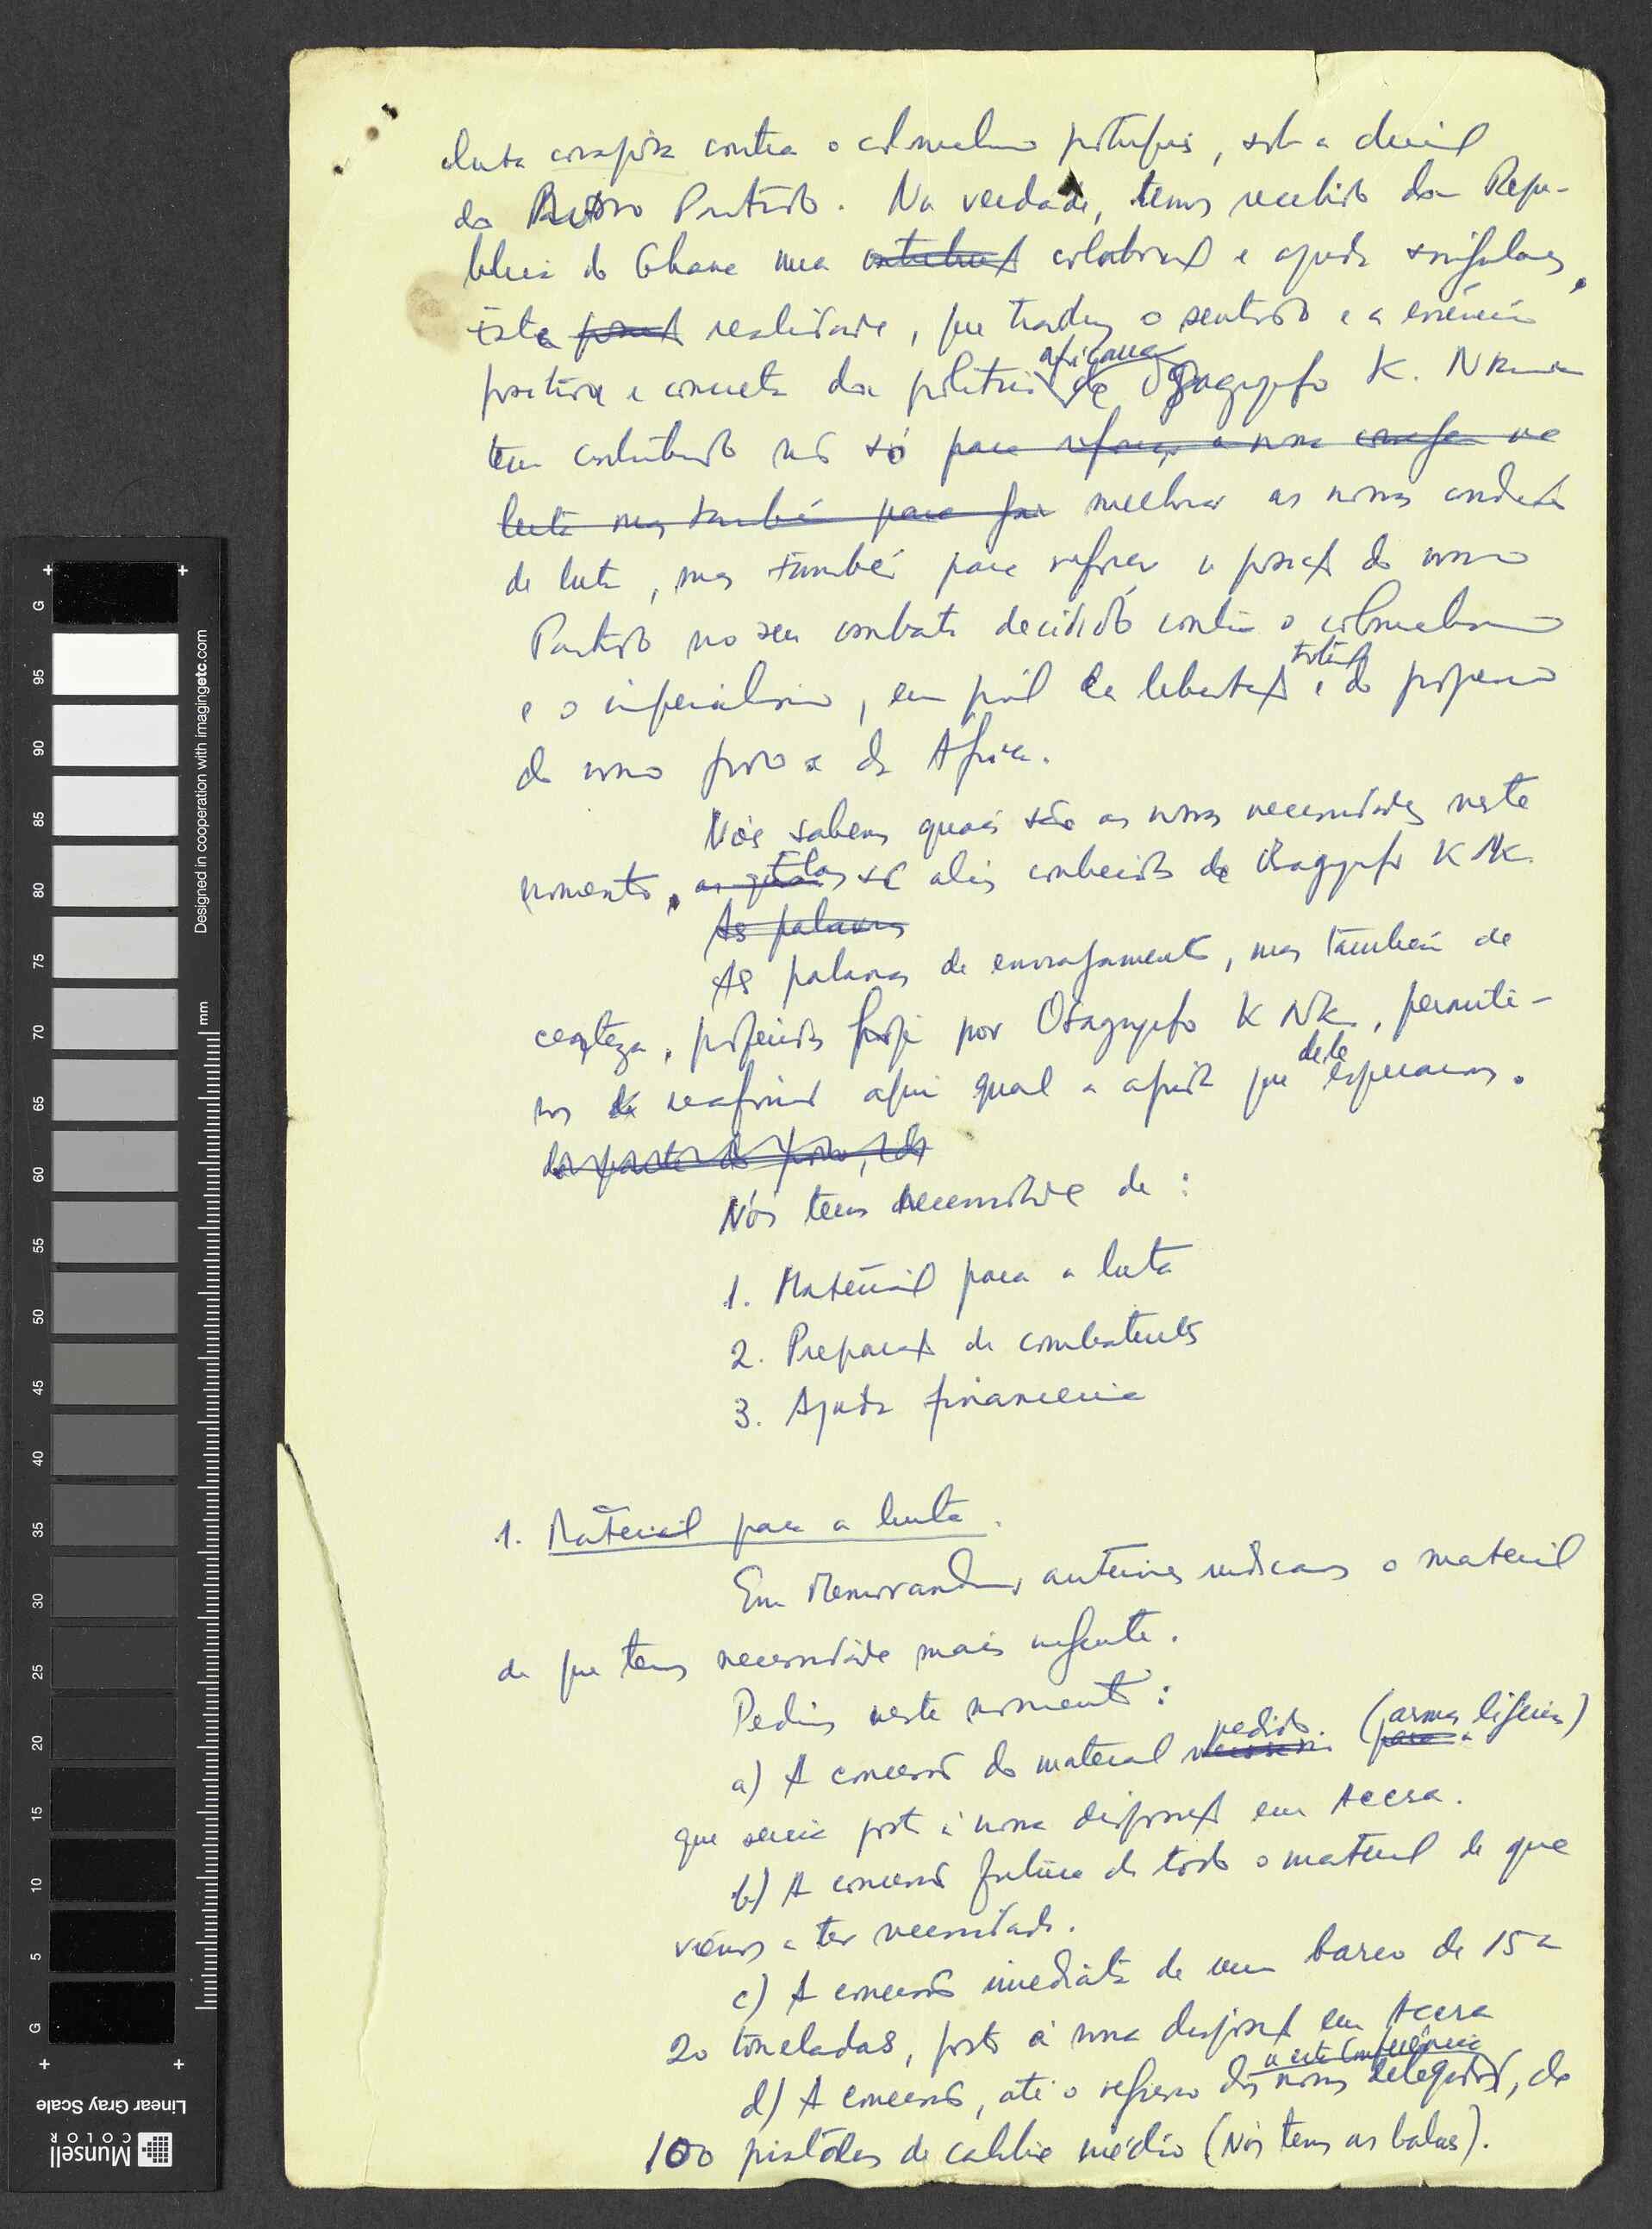 luta corajosa contra o colonialismo português, sob a direcção
do Nosso Partido. Na verdade, temos recebido da Repú-
blica do Ghana uma colaboração e ajuda singulares.
Esta realidade, que traduz o sentido e a essência
positiva e concreta da política africana de Osagyefo K. Nkrumah
tem contribuido não só para reforçar a nossa coragem na
luta mas também para melhorar as nossas condições
de luta, mas também para reforçar a posição do nosso
Partido no seu combate decidido contra o colonialismo
e o imperialismo, em prol da libertação total e do progresso
do nosso povo e da África.
Nós sabemos quais são as nossas necessidades neste
momento, são aliás conhecidas de Osagyefo K NK.
As palavras
As palavras de encorajamento, mas também de
certeza, proferidas hoje por Osagyefo K Nk., permitem-
nos reafirmar aqui qual a ajuda que dele esperamos.
Nós temos necessidade de:
1. Material para a luta
2. Preparação de combatentes
3. Ajuda financeira
1. Material para a luta.
Em Memorandos anteriores indicamos o material
de que temos necessidade mais urgente.
Pedimos neste momento:
a) A concessão do material pedido. (armas ligeiras)
que seria posto à nossa disposição em Accra.
b) A concessão futura de todo o material de que
viermos a ter necessidade.
c) A concessão imediata de um barco de 15 a
20 toneladas, posto à nossa disposição em Accra
d) A concessão, até o regresso dos nossos delegados a esta Conferência, de
100 pistolas de calibre médio (Nós temos as balas).
G
95
90
85
80
75
70
65
60
55
50
45
40
35
30
25
20
15
10
5
G
mm
Designed in cooperation with imagingetc.com
Linear Gray Scale
Munsell
COLOR